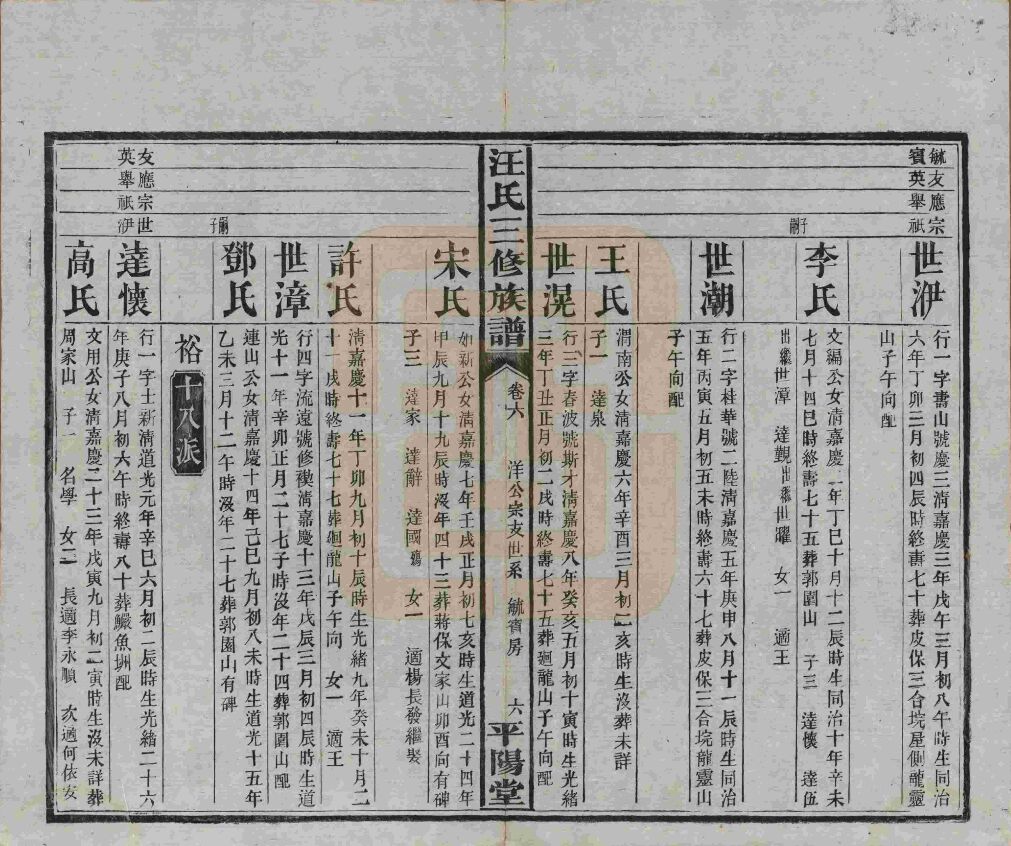 毓友應宗
賓英舉祇
世洢
行一字壽山號慶三清嘉慶三年戊午三月初八午時生同治
六年丁卯三月初四辰時終壽七十葬皮保三合垸屋側龍靈
山子午向配
子嗣
李氏
文編公女清嘉慶二年丁巳十月十二辰時生同治十年辛未
七月十四巳時終壽七十五葬郭園山 子三 達懷 達伍
出繼世潭 達觀出繼世曜 女一 適王
世潮
行二字桂華號二陸清嘉慶五年庚申八月十一辰時生同治
五年丙寅五月初五未時終壽六十七葬皮保三合垸龍靈山
子午向配
王氏
渭南公女清嘉慶六年辛酉三月初二亥時生沒葬未詳
子一 達泉
世滉
行三字春波號斯才清嘉慶八年癸亥五月初十寅時生光緒
三年丁丑正月初二戌時終壽七十五葬廻龍山子午向配
汪氏三修族譜
卷六 洋公宗支世系 毓賓房 六
平陽堂
宋氏
如新公女清嘉慶七年壬戌正月初七亥時生道光二十四年
甲辰九月十九辰時沒年四十三葬蔣保文家山卯酉向有碑
子三 達家 達辭 達國殤 女一 適楊長發繼娶
許氏
清嘉慶十一年丁卯九月初十辰時生光緒九年癸未十月二
十一戌時終壽七十七葬廻龍山子午向 女一 適王
世漳
行四字流遠號修禊清嘉慶十三年戊辰三月初四辰時生道
光十一年辛卯正月二十七子時沒年二十四葬郭園山配
嗣子
鄧氏
連山公女清嘉慶十四年己巳九月初八未時生道光十五年
乙未三月十二午時沒年二十七葬郭園山有碑
裕 十八派
友應宗世
英舉祇洢
達懷
行一字士新清道光元年辛巳六月初二辰時生光緒二十六
年庚子八月初六午時終壽八十葬鱖魚㘭配
高氏
文用公女清嘉慶二十三年戊寅九月初二寅時生沒未詳葬
周家山 子一 名學 女二 長適李永順 次適何依友